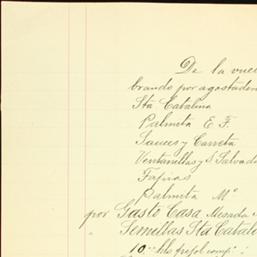 De la vuel
brando por agostaden
Sta Catalina
Palmeta E. F.
Sauces y Carreta
Ventanillas y S. Salvado
Tapias
Palmeta Mª
por Gasto Casa Mesada
" Semillas Sta Catal
10 kilo frejol comp